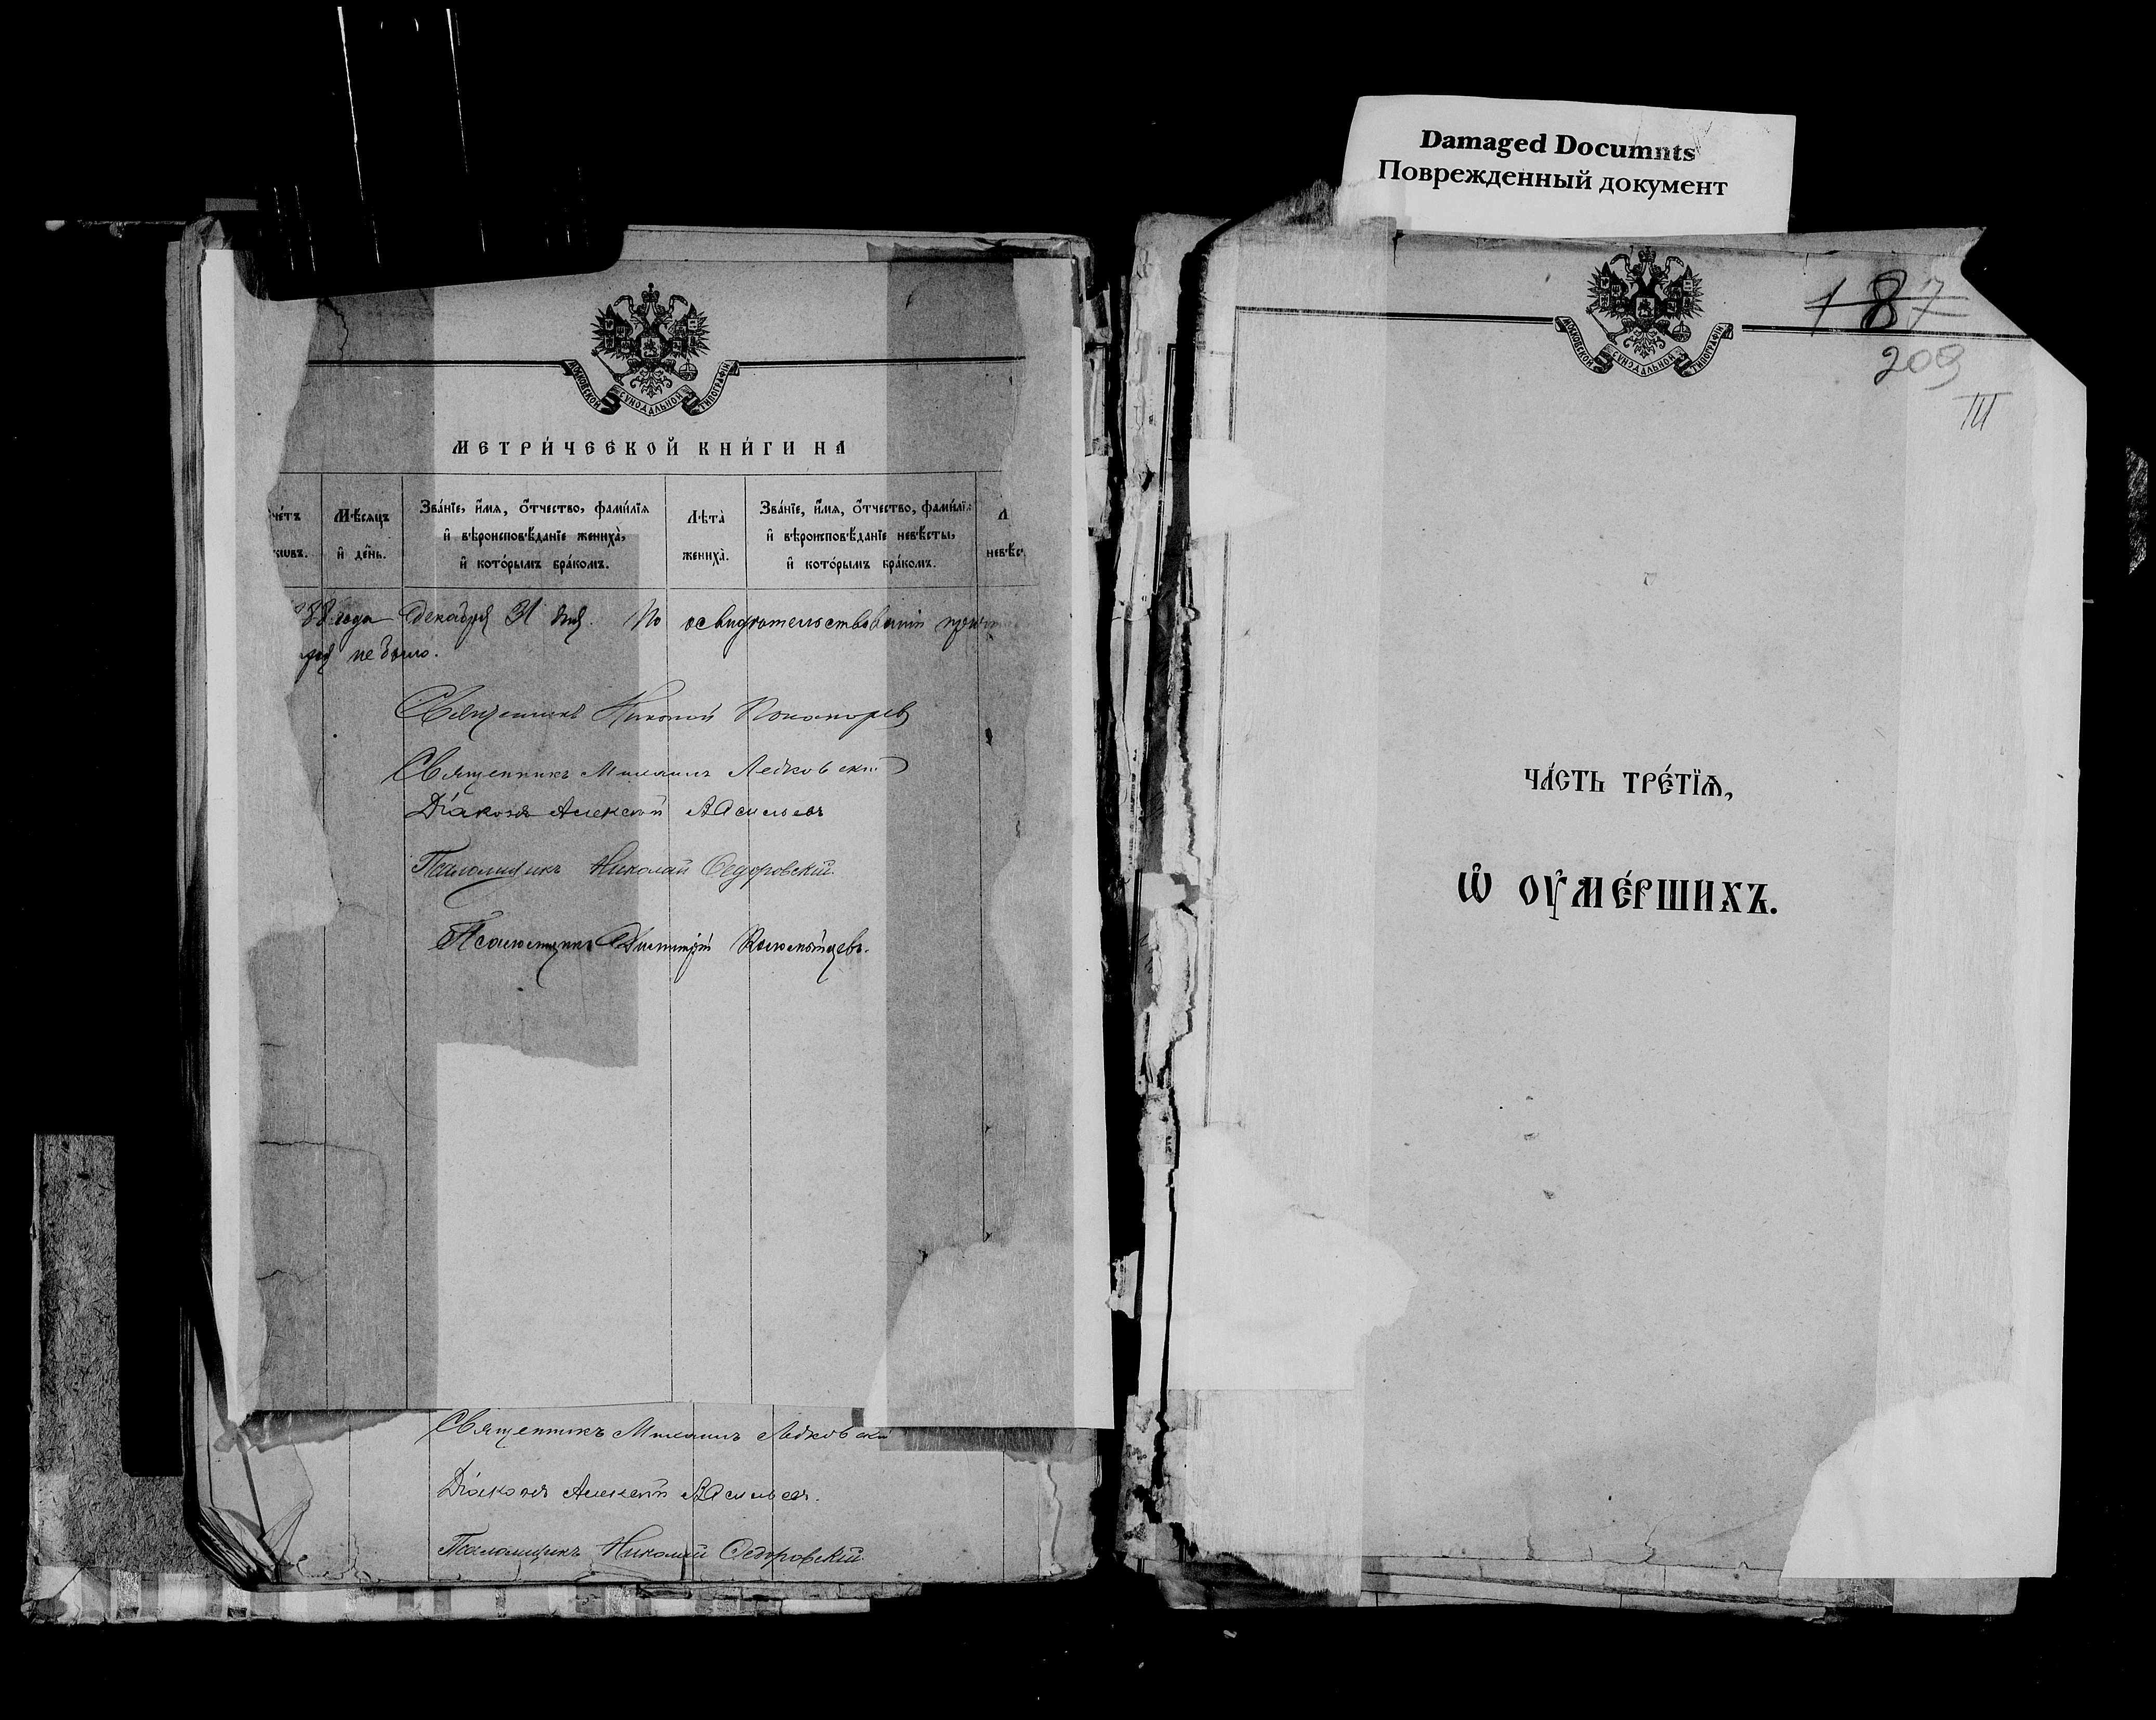 Damaged Documnts
Поврежденный документ
МОСКОВСКОЙ СѴНОДАЛЬНОЙ ТИПОГРАФІИ
МЕТРИ́ЧЕСКОЙ КНИ́ГИ НА
че́тъ
Мѣ́сяцъ и҆ де́нь.
Зва́нїе, и҆́мя, ѻ҆́тчество, фами́лїя
и҆ вѣроисповѣ́данїе жениха̀,
и҆ кото́рымъ бра́комъ.
Лѣта̀
жениха̀.
Зва́нїе, и҆́мя, ѻ҆́тчество, фами́лїѧ
и҆ вѣроисповѣ́данїе невѣ́сты,
и҆ кото́рымъ бра́комъ.
Л
невѣ́с
88 года Декабря 31 дня. По освидѣтельствованіи
не было.
Священникъ Николай
Священникъ Михаилъ Ледковскій
Діаконъ Алексѣй Васильевъ
Псаломщикъ Николай Ѳедоровскій.
Псаломщикъ Димитрій
Священникъ Михаилъ Ледковскій
Діаконъ Алексѣй Васильевъ.
Псаломщикъ Николай Ѳедоровскій.
МОСКОВСКОЙ СѴНОДАЛЬНОЙ ТИПОГРАФІИ
187
209
III
ЧА́СТЬ ТРЕ́ТЇѦ,
Ѡ҆ ОУ҆МЕ́РШИХЪ.